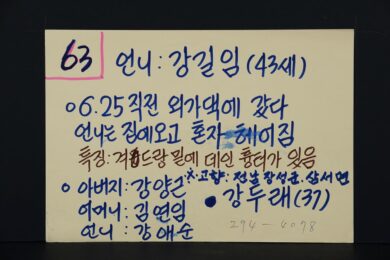 63
언니: 강길임 (43세)
○ 6.25 직전 외가댁에 갔다
언니는 집에오고 혼자 헤어짐
특징: 겨드랑 밑에 데인 흉터가 있음
※고향: 전남 장성군. 삼서면
○ 아버지: 강양근
● 강두래 (37)
어머니: 김연임
언니: 강애순
294-4078